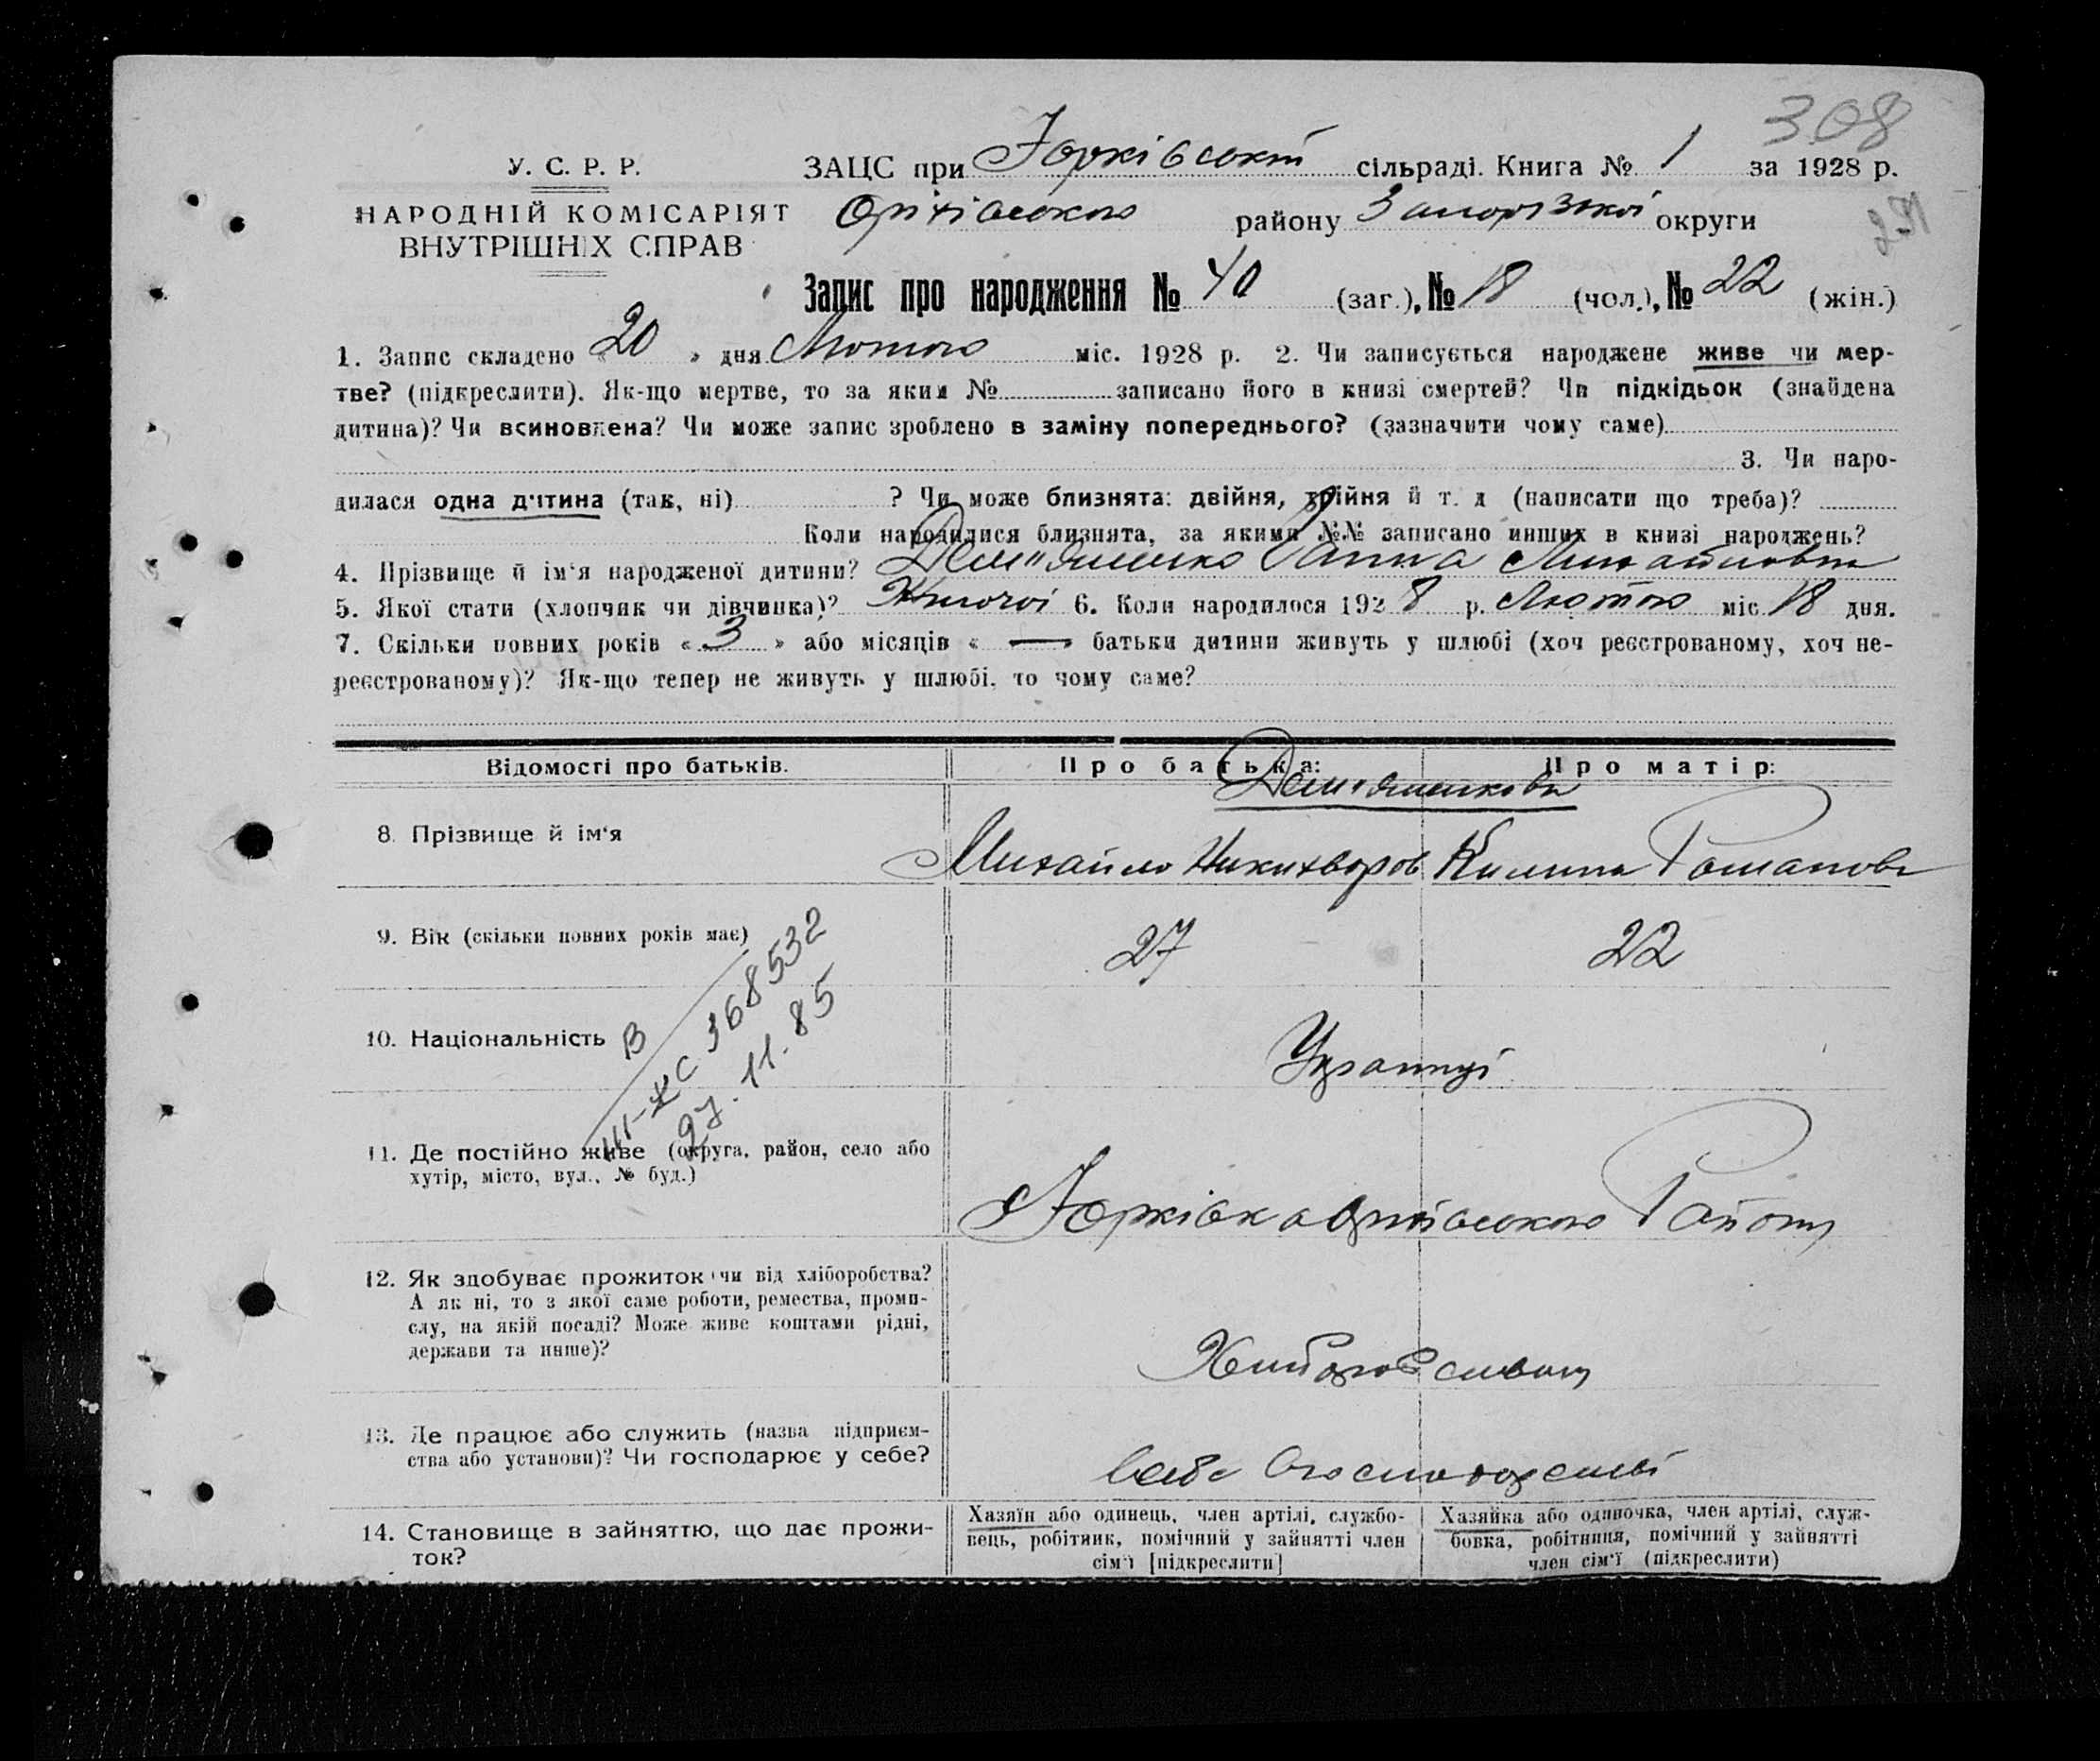 308
У. С. Р. Р.
ЗАЦС при Юрківській сільраді. Книга № 1 за 1928 р.
НАРОДНІЙ КОМІСАРІЯТ
ВНУТРІШНІХ СПРАВ
Оріхівського району Запорізької округи
Запис про народження № 40 (заг.), № 18 (чол.), № 22 (жін.)
1. Запис складено « 20 » дня Лютого міс. 1928 р. 2. Чи записується народжене живе чи мер-
тве? (підкреслити). Як-що мертве, то за яким № записано його в книзі смертей? Чи підкідьок (знайдена
дитина)? Чи всиновлена? Чи може запис зроблено в заміну попереднього? (зазначити чому саме)
3. Чи наро-
дилася одна дитина (так, ні) ? Чи може близнята: двійня, трійня й т. д (написати що треба)?
Коли народилися близнята, за якими №№ записано инших в книзі народжень?
4. Прізвище й ім‘я народженої дитини? Дем"яненко Ганна Михайловна
5. Якої стати (хлопчик чи дівчинка)? Жіночої 6. Коли народилося 1928 р. Лютого міс. 18 дня.
7. Скільки повних років « 3 » або місяців « — » батьки дитини живуть у шлюбі (хоч реєстрованому, хоч не-
реєстрованому)? Як-що тепер не живуть у шлюбі, то чому саме?
Відомості про батьків. Про батька: Про матір:
Дем'яненкови
8. Прізвище й ім‘я Михайло Никихворов Килина Романовна
9. Вік (скільки повних років має) 27 22
10. Національність Українці
В
III-ЖС 368532
27.11.85
11. Де постійно живе (округа, район, село або
хутір, місто, вул., № буд.)
Юрківка Оріхівського Району
12. Як здобуває прожиток чи від хліборобства?
А як ні, то з якої саме роботи, ремества, проми-
слу, на якій посаді? Може живе коштами рідні,
держави та инше)?
Хліборобством
13. Де працює або служить (назва підприєм-
ства або установи)? Чи господарює у себе?
14. Становище в зайняттю, що дає прожи-
ток?
Хазяїн або одинець, член артілі, службо-
вець, робітник, помічний у зайнятті член
сім‘ї [підкреслити]
Хазяйка або одиночка, член артілі, служ-
бовка, робітниця, помічний у зайнятті
член сім‘ї (підкреслити)